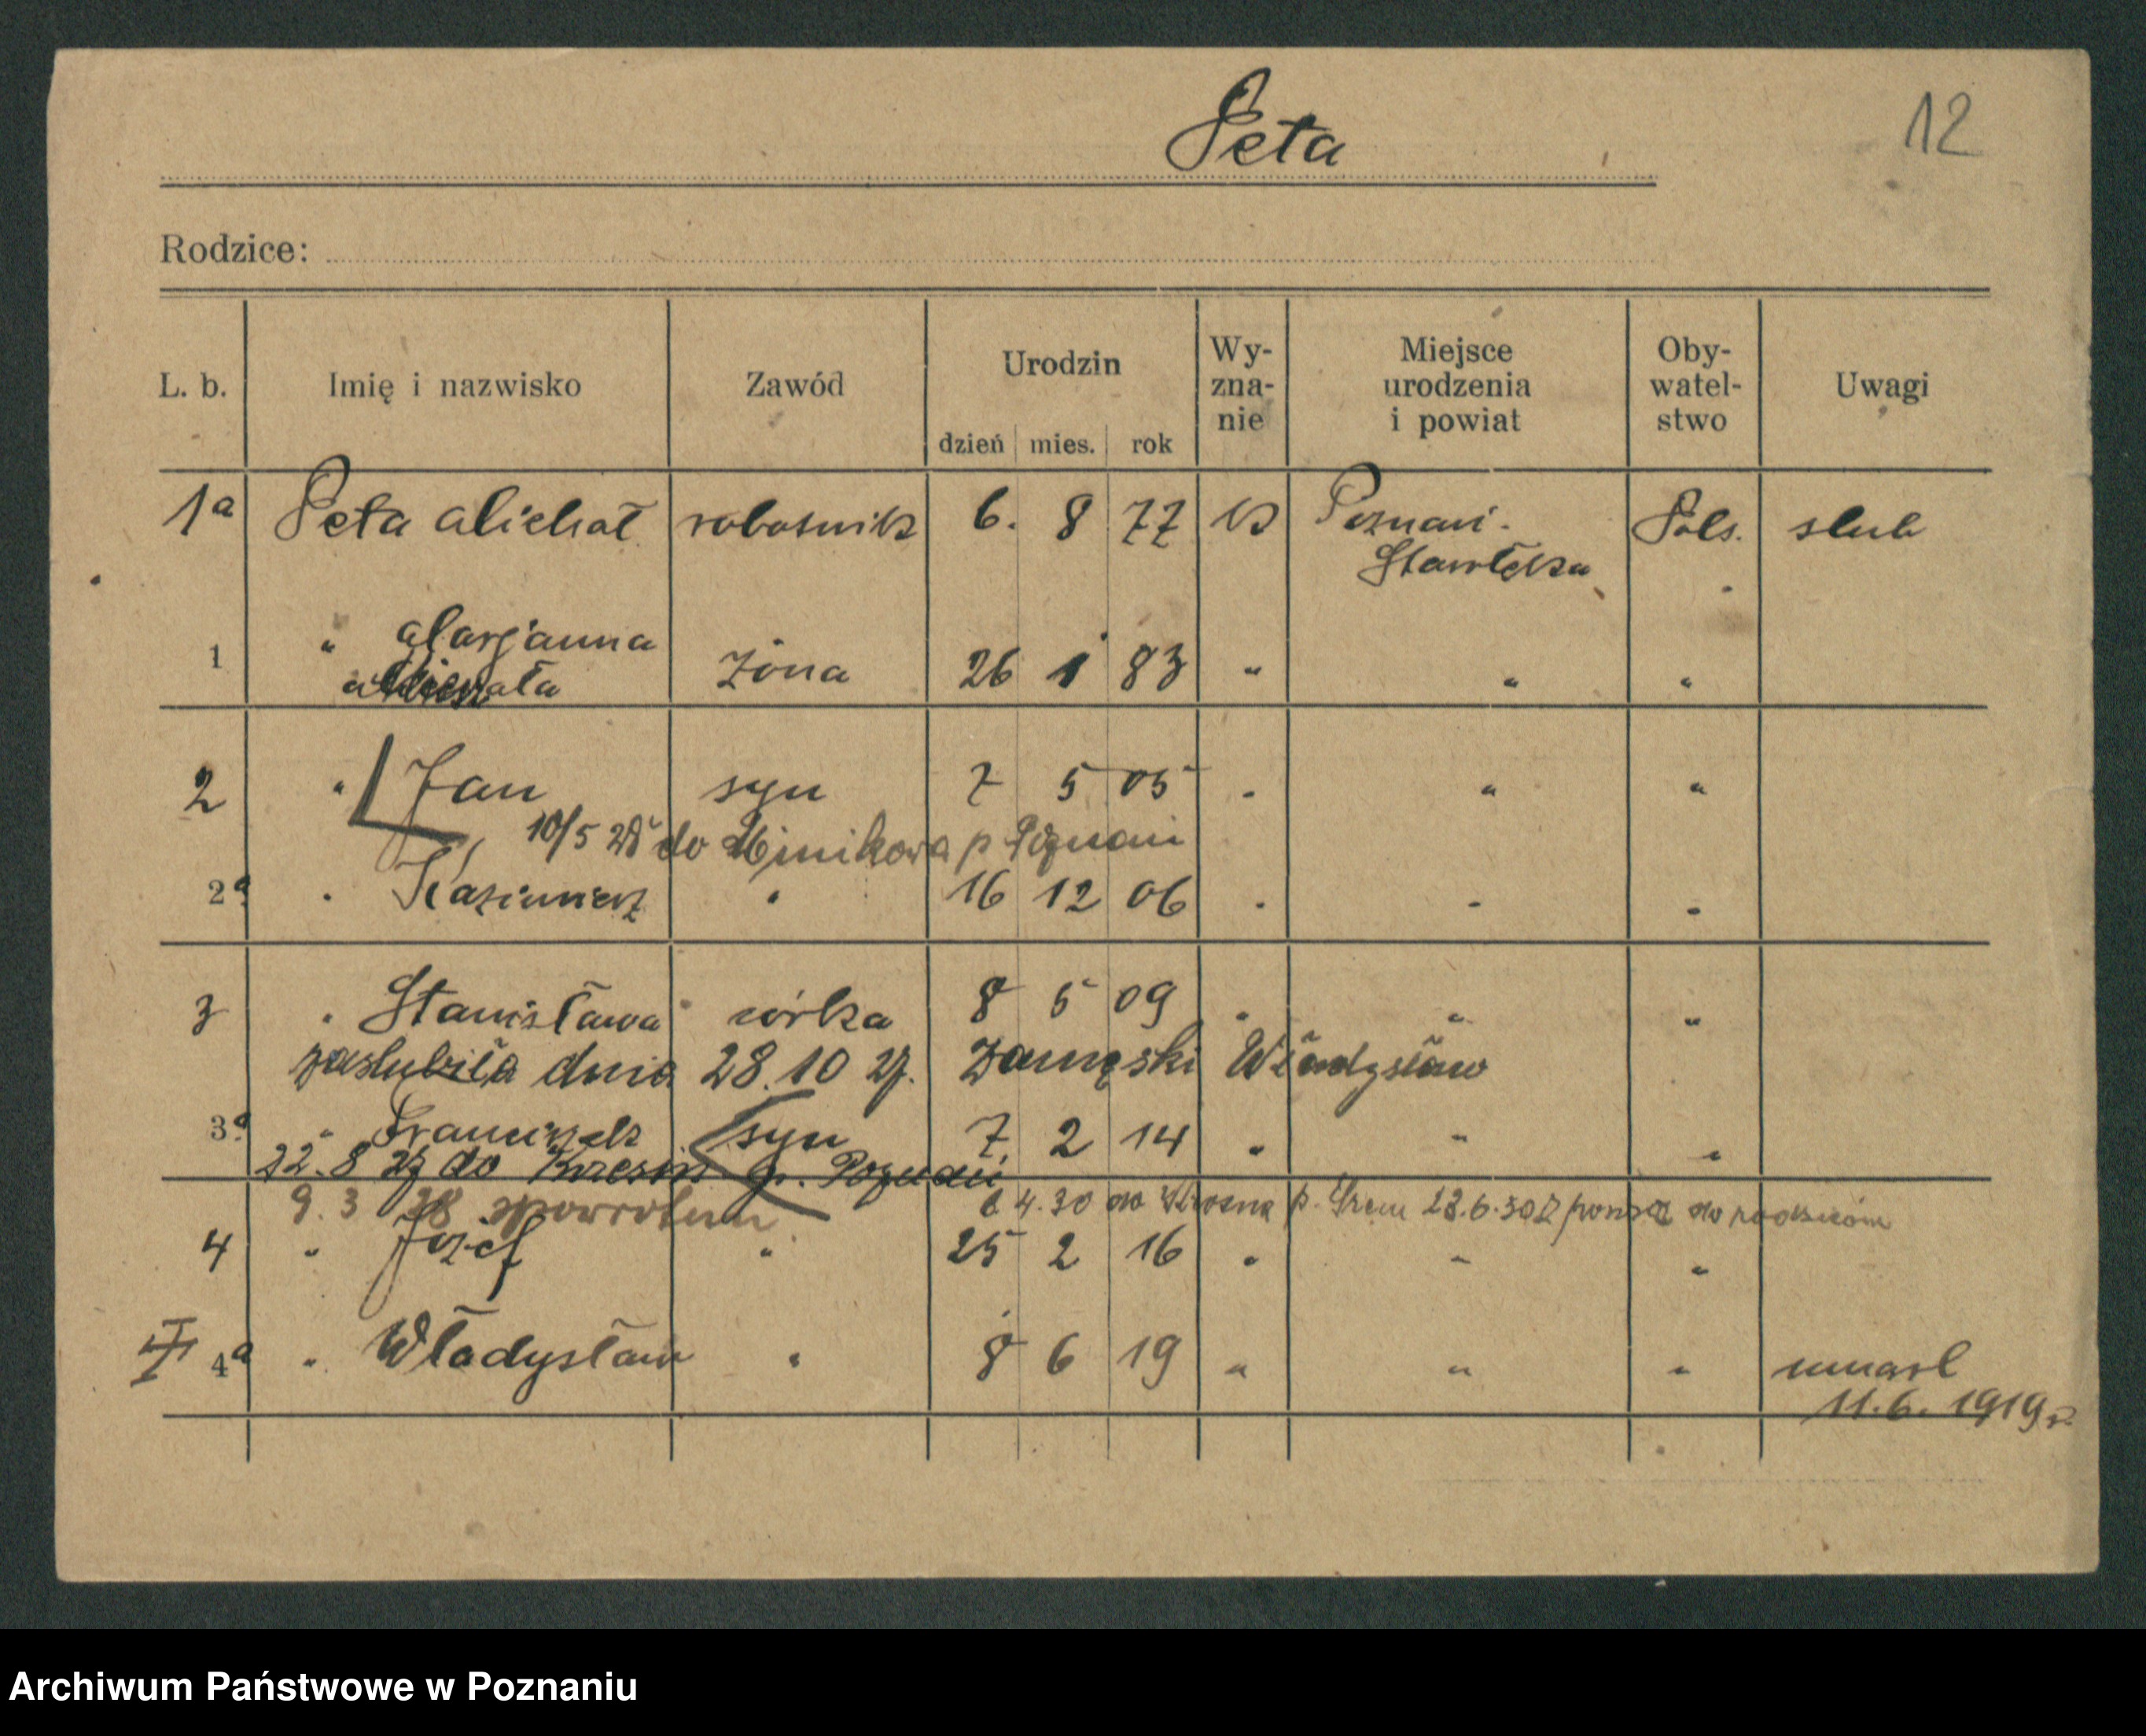 Peta
12
Rodzice:
L. b. Imię i nazwisko Zawód Urodzin dzień mies. rok Wy-zna-nie Miejsce urodzenia i powiat Oby-watel-stwo Uwagi
1a Peta Michał robotnik 6. 8 77 k Poznań - Pols. slub
Starołęka
" Marjanna
1 żona 26 1 83 " " "
2 " Jan syn 7 5 05 " " "
10/5 do Minikowa p Poznań
2a " Kazimierz " 16 12 06 " " "
3 " Stanisława córka 8 5 09 " " "
zaslubiła dnia 28.10 27. Władysław
3a " Franciszek syn 7. 2 14 " " "
22.8 27 do p. Poznań
9.3 28 spowrotem
4.30 do p. Śrem 28.6.30 do rodziców
4 " Józef " 25 2 16 " " "
4a " Władysław " 8 6 19 " " " umarl
11.6. 1919 r.
Archiwum Państwowe w Poznaniu